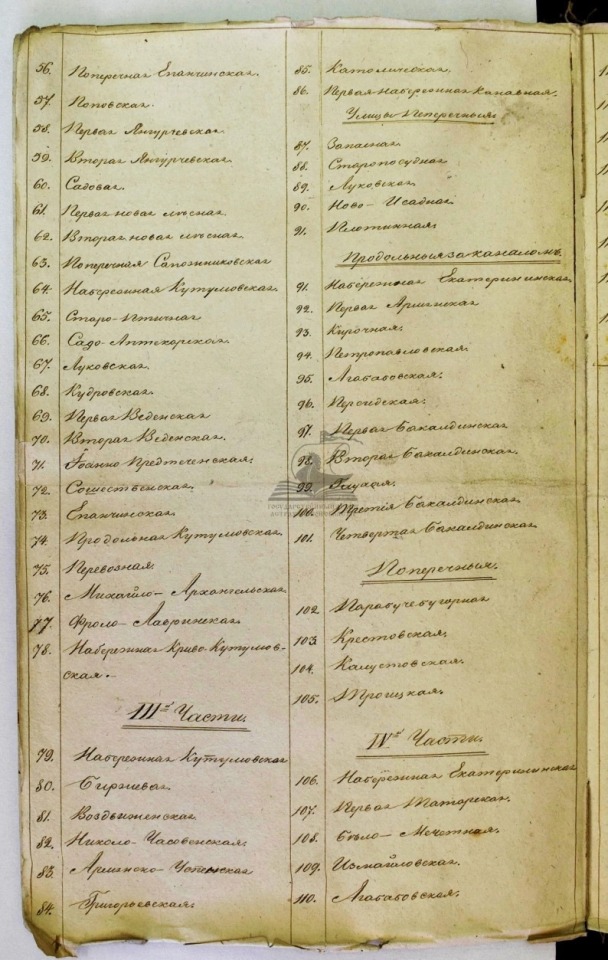 56. Поперечная Епанчинская.
57. Поповская.
58. Первая Янгурчевская
59. Вторая Янгурчевская
60. Садовая.
61. Первая новая лѣсная
62. Вторая новая лѣсная.
63. Поперечная Сапожниковская
64. Набережная Кутумовская.
65. Старо-Птичная
66. Садо-Аптекарская.
67. Луковская.
68. Кудровская.
69. Первая Веденская
70. Вторая Веденская.
71. Іоанно Предтеченская.
72. Сошественская.
73. Епанчинская.
74. Продольная Кутумовская.
75. Перевозная.
76. Михайло-Архангельская.
77. Фроло-Лавринская.
78. Набережная Криво-Кутумов-
ская.
IIIй Части.
79. Набережная Кутумовская
80. Биржевая.
81. Воздвиженская.
82. Николо-Часовенская.
83. Армянско-
84. Григорьевская.
85. Католическая.
86. Первая Набережная Канавная.
Улицы Поперечныя.
87. Запасная.
88. Старопосудная
89. Луковская.
90. Ново-Исадная
91. Плотинная.
Продольныя за каналомъ
91. Набережная Екатерининская
92. Первая Армянская
93. Кирочная.
94. Петропавловская.
95. Агабабовская.
96. Персидская.
97. Первая Бакалдинская
98. Вторая Бакалдинская.
99. Глухая.
100. Третія Бакалдинская
101. Четвертая Бакалдинская
Поперечныя.
102. Паробичебугорная
103. Крестовская.
104. Калустовская.
105. Троицкая.
IVй Части.
106. Набережная Екатерининская
107. Первая Татарская.
108. Бѣло-Мечетная.
109. Измайловская.
110. Агабабовская.